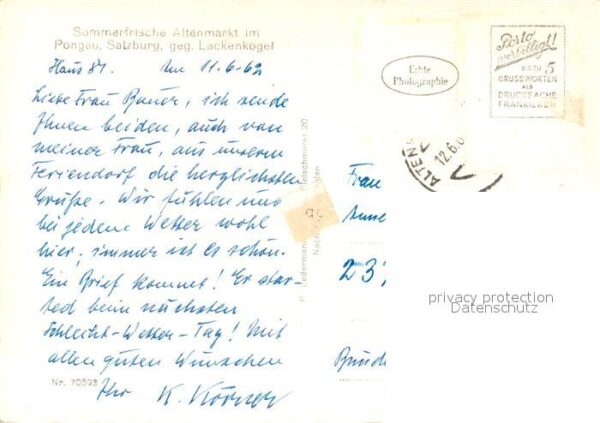 Sommerfrische Altenmarkt im
Pongau, Salzburg, geg. Lackenkogel
Haus 81. den 11.6.62
Liebe Frau Bauer, ich sende
Ihnen beiden, auch von
meiner Frau, aus unserm
Feriendorf die herzlichsten
Grüße. Wir fühlen uns
bei jedem Wetter wohl
hier; immer ist es schön.
Ein Brief kommt! Er star-
ted beim nächsten
Schlecht-Wetter-Tag! Mit
allen guten Wünschen
Ihr K. Körner
Nr. 70593
Fleischmarkt 20
Echte
Photographie
Porto
verbilligt!
BIS ZU 5
GRUSSWORTEN
ALS
DRUCKSACHE
FRANKIEREN
ALTENM
12.6.6
Frau
Anne
237
privacy protection
Datenschutz